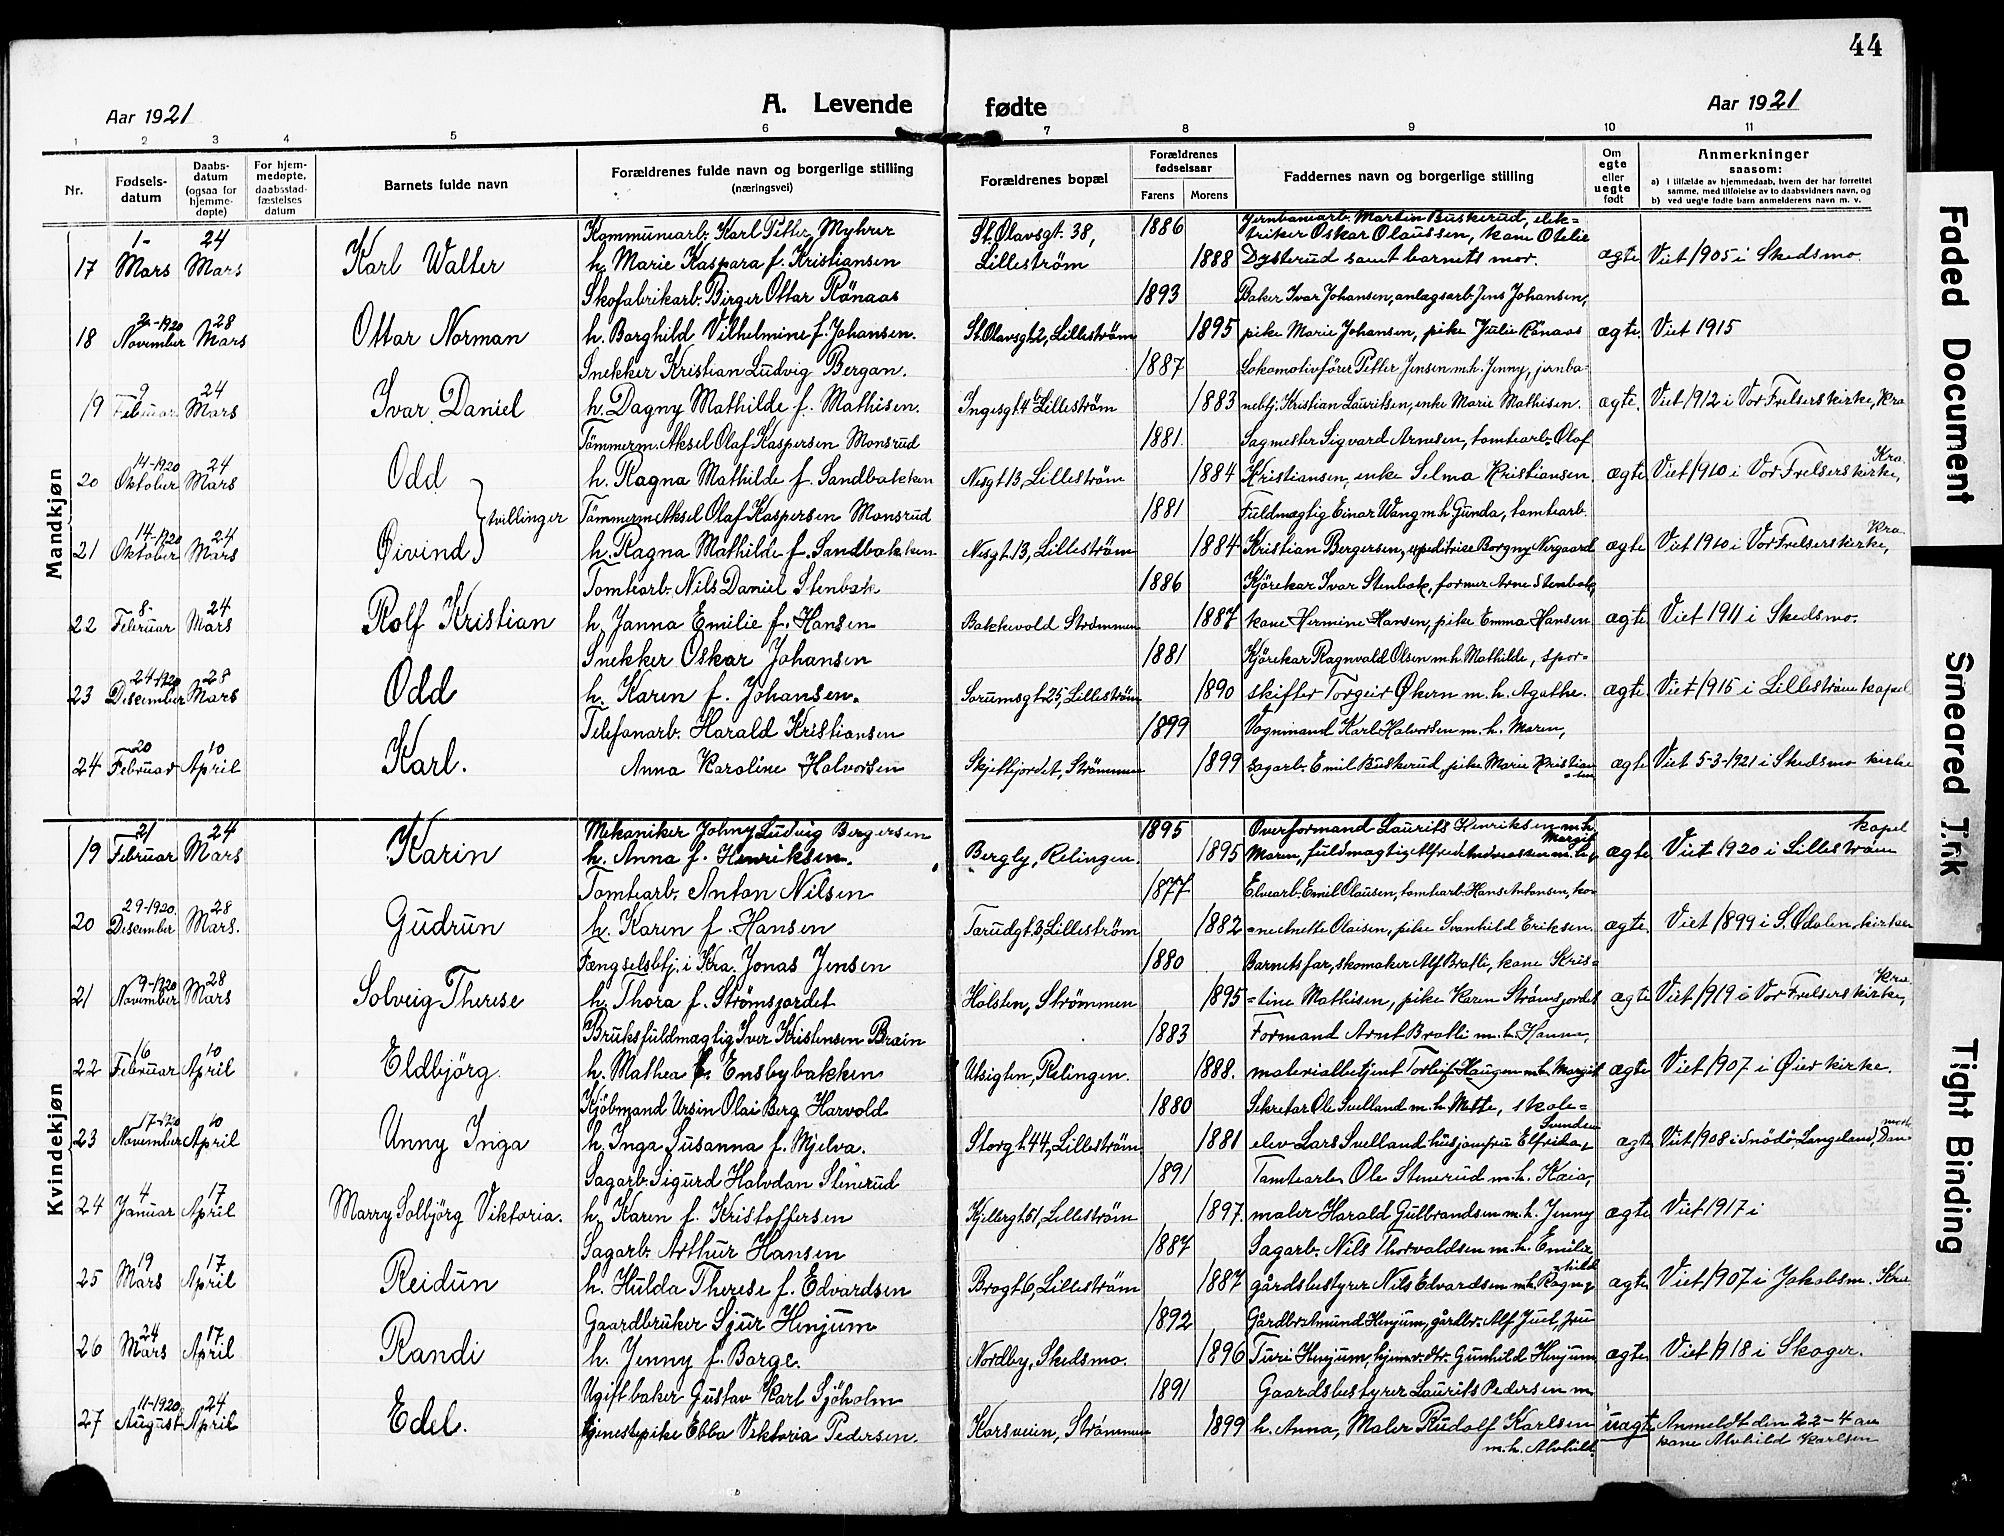 44
Aar 1921
A. Levende fødte
Aar 1921
1 2 3 4 5 6 7 8 9 10 11
Nr.
Fødsels-
datum
Daabs-
datum
(ogsaa for
hjemme-
døpte)
For hjem-
medøpte,
daabsstad-
fæstelses
datum
Barnets fulde navn
Forældrenes fulde navn og borgerlige stilling
(næringsvei)
Forældrenes bopæl
Forældrenes
fødselsaar
Farens Morens
Faddernes navn og borgerlige stilling
Om
egte
eller
uegte
født
Anmerkninger
saasom:
a) i tilfælde av hjemmedaab, hvem der har forrettet
samme, med tilføielse av to daabsvidners navn, og
b) ved uegte fødte barn anmelderens navn m. v.
Mandkjøn
1- 24 Kommunearb. Karl Petter Myhrer St. Olavsgt. 38, 1886 Jernbanearb. Martin Buskerud, elek=
triker Oskar Olaussen, kone Otelie
17 Mars Mars Karl Walter h. Marie Kaspara f. Kristiansen Lilleström 1888 Dysterud samt barnets mor. ægte Viet 1905 i Skedsmo.
Skofabrikarb. Birger Ottar Rönaas 1893 Baker Ivar Johansen, anlægsarb. Jens Johansen,
2-1920 28
18 November Mars Ottar Norman h. Borghild Vilhelmine f. Johansen. St. Olavsgt. 2, Lilleström 1895 pike Marie Johansen, pike Julie Rönaas ægte. Viet 1915
Snekker Kristian Ludvig Bergan. 1887 Lokomotivförer Petter Jensen m.h. Jenny, jernba-
9 24
19 Februar Mars Ivar Daniel h. Dagny Mathilde f. Mathisen. Ingesgt. 4 Lilleström 1883 nebtj. Kristian Lauritsen, enke Marie Mathisen. ægte. Viet 1912 i Vor Frelsers kirke, Kra
Tömmerm. Aksel Olaf Kaspersen Monsrud 1881. Sagmester Sigvard Arnesen, tomtearb. Olaf
14-1920 24 Kra.
20 Oktober Mars Odd h. Ragna Mathilde f. Sandbakken Nesgt. 13, Lilleström 1884 Kristiansen, enke Selma Kristiansen ægte Viet 1910 i Vor Frelsers kirke,
tvillinger Tömmerm. Aksel Olaf Kaspersen Monsrud 1881 Fuldmægtig Einar Wang m.h. Gunda, tomtearb.
14-1920 24 Kra
21 Oktober Mars Øivind h. Ragna Mathilde f. Sandbakken Nesgt. 13, Lilleström 1884 Kristian Bergersen, expeditrice Borgny Nergaard ægte Viet 1910 i Vor Frelsers kirke,
Tomtearb. Nils Daniel Stenbæk 1886 Kjörekar Ivar Stenbæk, former Arne Stenbæk,
8- 24
22 Februar Mars Rolf Kristian h. Janna Emilie f. Hansen Bakkevold Strömmen 1887 kone Hermine Hansen, pike Emma Hansen ægte Viet 1911 i Skedsmo.
Snekker Oskar Johansen 1881 Kjörekar Ragnvald Olsen m.h. Mathilde, spor=
24-1920 28
23 Desember Mars Odd h. Karen f. Johansen. Sorumsgt. 25, Lilleström 1890 skifter Torgeir Økern m.h. Agathe. ægte. Viet 1915 i Lilleström kapel
Telefonarb. Harald Kristiansen 1899 Vognmand Karl Halvorsen m.h. Maren,
20 10
24 Februar April Karl. Anna Karoline Halvorsen Skjettfjordet, Strömmen 1899 sagarb. Emil Buskerud, pike Marie Kristian
=sen ægte Viet 5-3-1921 i Skedsmo kirke
Kvindekjøn
21 24 Mekaniker Johny Ludvig Bergersen 1895 Overformand Laurits Henriksen m.h. kapel
Margit
19 Februar Mars Karin h. Anna f. Henriksen. Bergly, Relingen. 1895 Maren, fuldmægtig Alfred Andreassen m.h. ægte Viet 1920 i Lilleström
Tomtearb. Anton Nilsen 1877 Elvearb. Emil Olausen, tomtearb. Hans Antonsen, ko-
29-1920. 28
20 Desember Mars. Gudrun h. Karen f. Hansen Torudgt. 3, Lilleström 1882 =ne Anette Olaisen, pike Svanhild Eriksen. ægte. Viet 1899 i S. Odalen kirken
Fængselsbtj. i Kra. Jonas Jensen 1880 Barnets far, skomaker Alf Bratli, kone Kris=
9-1920 28 Kra
21 November Mars Solveig Therese h. Thora f. Strömsjordet Holsten, Strömmen 1895 =tine Mathisen, pike Karen Strömsjordet ægte Viet 1919 i Vor Frelsers kirke,
Bruksfuldmægtig Iver Kristensen Bræin 1883 Formand Arnt Bratli m.h. Hanna,
16 10
22 Februar April Eldbjörg. h. Mathea f. Ensbybakken Utsigten, Relingen. 1888. materialbetjent Torleif Haugen m.h. Margit ægte Viet 1907 i Øier kirke.
Kjöbmand Ursin Olai Berg Harvold 1880 Sekretær Ole Svelland m.h. Mette, skole=
17-1920 10
23 November April Unny Inga h. Inga Susanna f. Mjelva. Storgt. 44, Lilleström 1881 elev Lars Svelland, husjomfru Elfrika ægte Viet 1908 i Snödö, Langeland, Dan
mark
Sagarb. Sigurd Halvdan Stenerud 1891 Tomtearb. Ole Stenerud m.h. Kaia,
4 17
24 Januar April Marry Solbjörg Viktoria. h. Karen f. Kristoffersen Kjellergt. 51, Lilleström 1897. maler Harald Gulbrandsen m.h. Jenny ægte Viet 1917 i
Sagarb. Arthur Hansen 1887 Sagarb. Nils Thorvaldsen m.h. Emilie,
19 17 =hild
25 Mars April Reidun h. Hulda Therese f. Edvardsen Brogt. 6, Lilleström 1887 gårdsbestyrer Nils Edvardsen m.h. Ragn ægte Viet 1907 i Jakobsm. Kra
Gaardbruker Sjur Henjum 1892 Gårdbr. Amund Henjum, gårdbr. Alf Juel, fru
24 17
26 Mars April Randi h. Jenny f. Borge. Nordby, Skedsmo. 1896 Turi Henjum, hjemv. dtr. Gunhild Henjum ægte Viet 1918 i Skoger.
Ugift baker Gustav Karl Sjöholm 1891 Gaardsbestyrer Laurits Pedersen m
11-1920 24
27 August April Edel. tjenestepike Ebba Viktoria Pedersen. Korsveien, Strömmen 1899 h. Anna, Maler Rudolf Karlsen uægte Anmeldt den 22-4 av
m.h. Alvhild. kone Alvhild Karlsen
Faded Document
Smeared Ink
Tight Binding